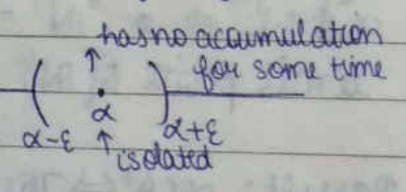 has no accumulation
for some time
α
α-ε
α+ε
isolated